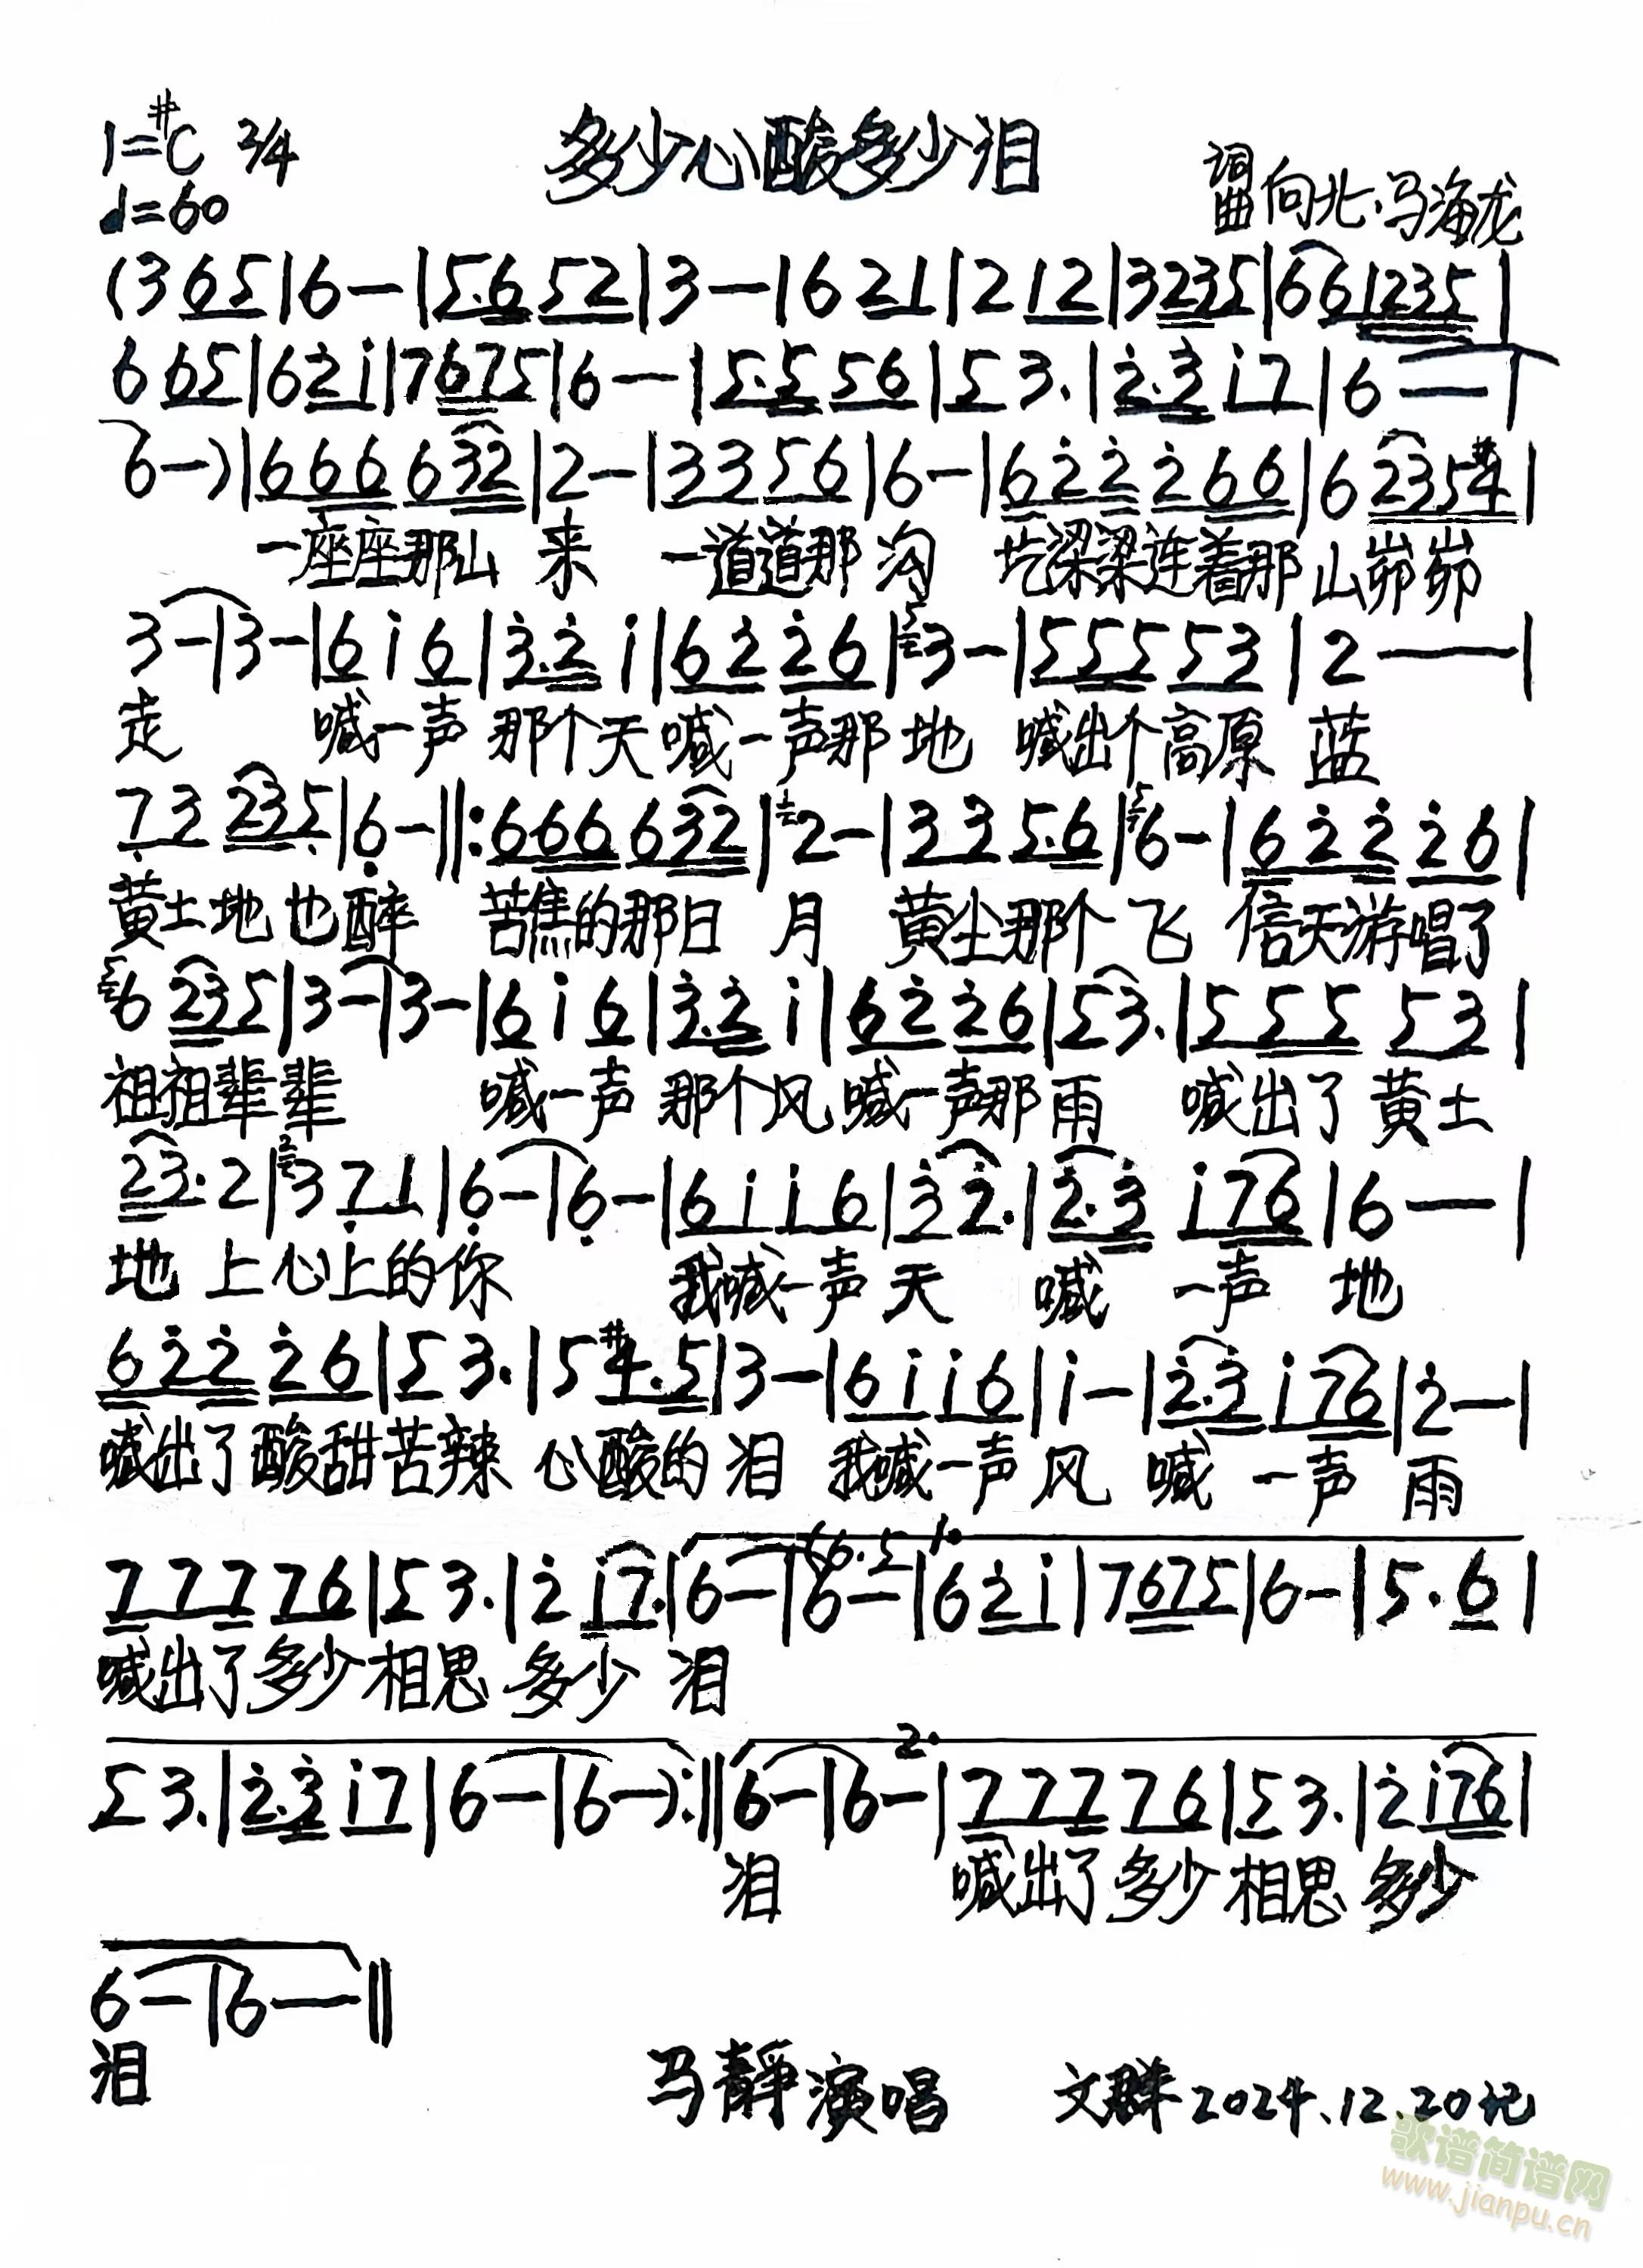 1=#C 2/4 多少心酸多少泪
♩=60 词曲 向北、马海龙
(3 6 5|6 —|5. 6 5 2|3 —|6 2 1|2 1 2|3 2 3 5|6 6 1 2 3 5|
6 6 5|6 2̇ i|7 6 7 5|6 —|5. 5 5 6|5 3.|2̇. 3̇ i 7|6 —|
6 —)|6 6 6 6 3 2|2 —|3 3 5 6|6 —|6 2̇ 2̇ 2̇ 6 6|6 2 3 5 #4|
一座座那山 来 一道道那 沟 圪梁梁连着那 山峁峁
3 —|3 —|6 i 6|3̇. 2̇ i|6 2̇ 2̇ 6|5 3 —|5 5 5 5 3|2 — —|
走 喊一声 那个天 喊一声那 地 喊出个高原 蓝
7̣ 3 2 3 5̣|6̣ —‖:6 6 6 6 3 2|1 2 —|3 3 5. 6|5 6 —|6 2̇ 2̇ 2̇ 6|
黄土地也醉 苦焦的那日 月 黄尘那个 飞 信天游唱了
5 6 2 3 5|3 —|3 —|6 i 6|3̇. 2̇ i|6 2̇ 2̇ 6|5 3.|5 5 5 5 3|
祖祖辈辈 喊一声 那个风 喊一声那 雨 喊出了 黄土
2 3. 2|2 3 7̣ 1|6̣ —|6̣ —|6 i i 6|3̇ 2̇.|2̇. 3̇ i 7 6|6 —|
地 上心上的你 我喊一声 天 喊 一声 地
6 2̇ 2̇ 2̇ 6|5 3.|5 #4. 5|3 —|6 i i 6|i —|2̇. 3̇ i 7 6|2̇ —|
喊出了酸甜苦辣 心酸的 泪 我喊一声 风 喊 一声 雨
(6. 5 1.
7 7 7 7 6|5 3.|2̇ i 7.|6 —|6 —|6 2̇ i|7 6 7 5|6 —|5. 6|
喊出了多少相思 多少 泪
2.
5 3.|2̇. 3̇ i 7|6 —|6 —):‖6 —|6 —|7 7 7 7 6|5 3.|2̇ i 7 6|
泪 喊出了多少 相思 多少
6 —|6 —‖
泪 马静演唱 文群 2024.12.20记
歌谱简谱网
www.jianpu.cn